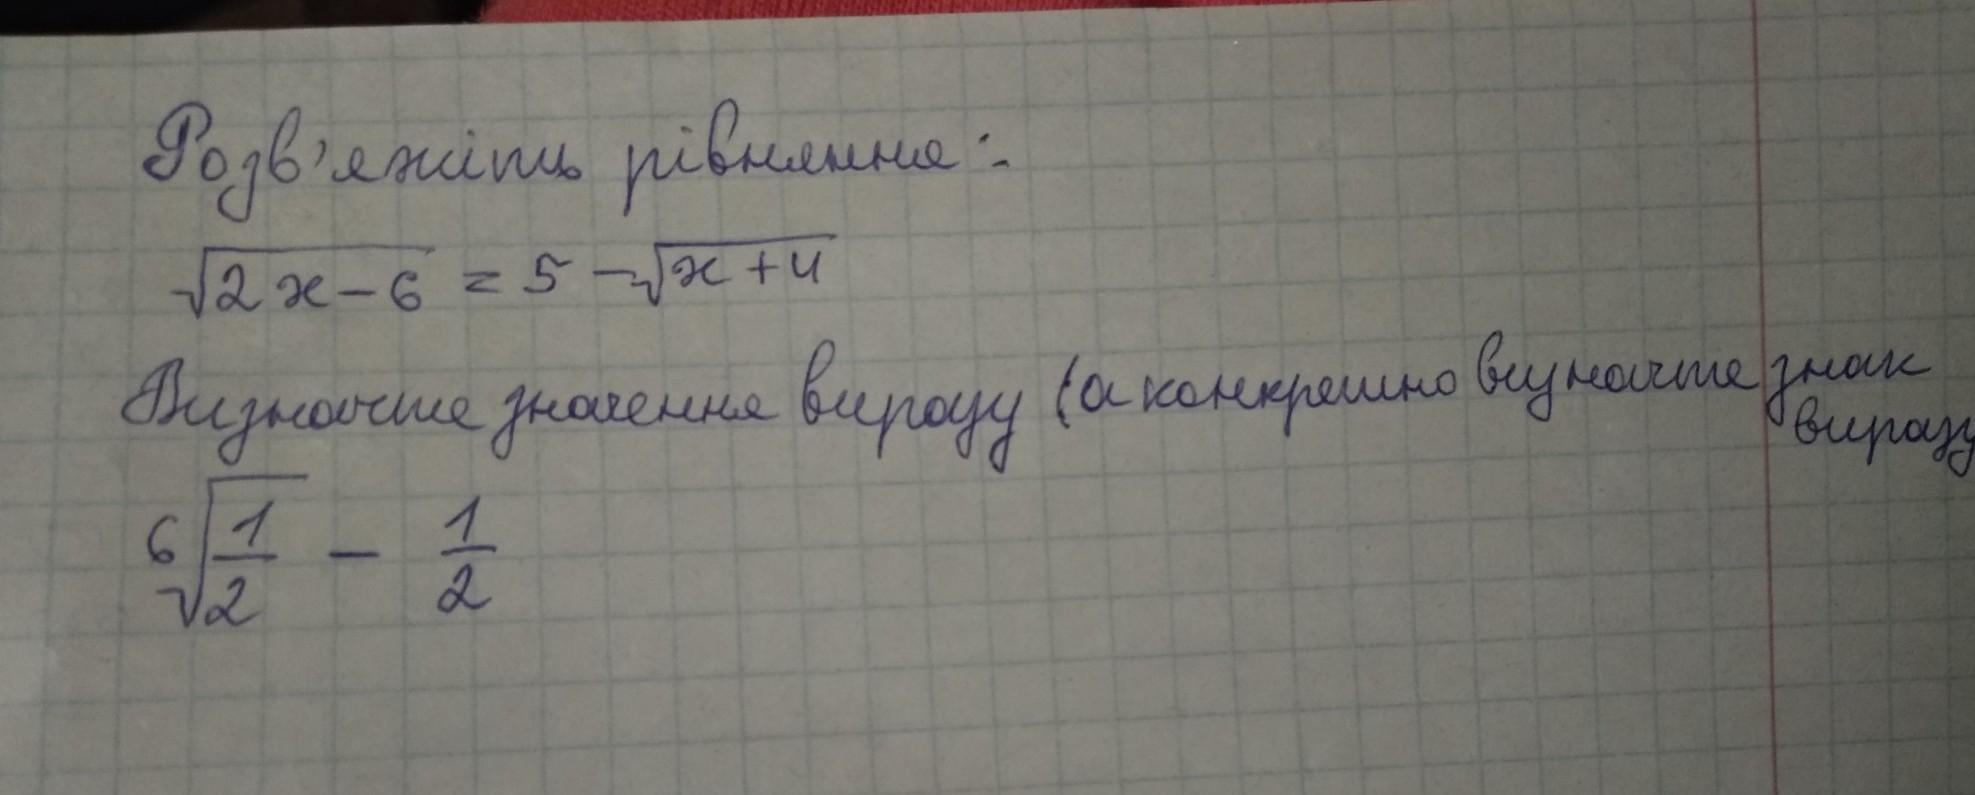 Розв'яжіть рівняння:
√2x-6 = 5 - √x+4
Визначте значення виразу (а конкретно визначте знак
виразу
⁶√1/2 - 1/2